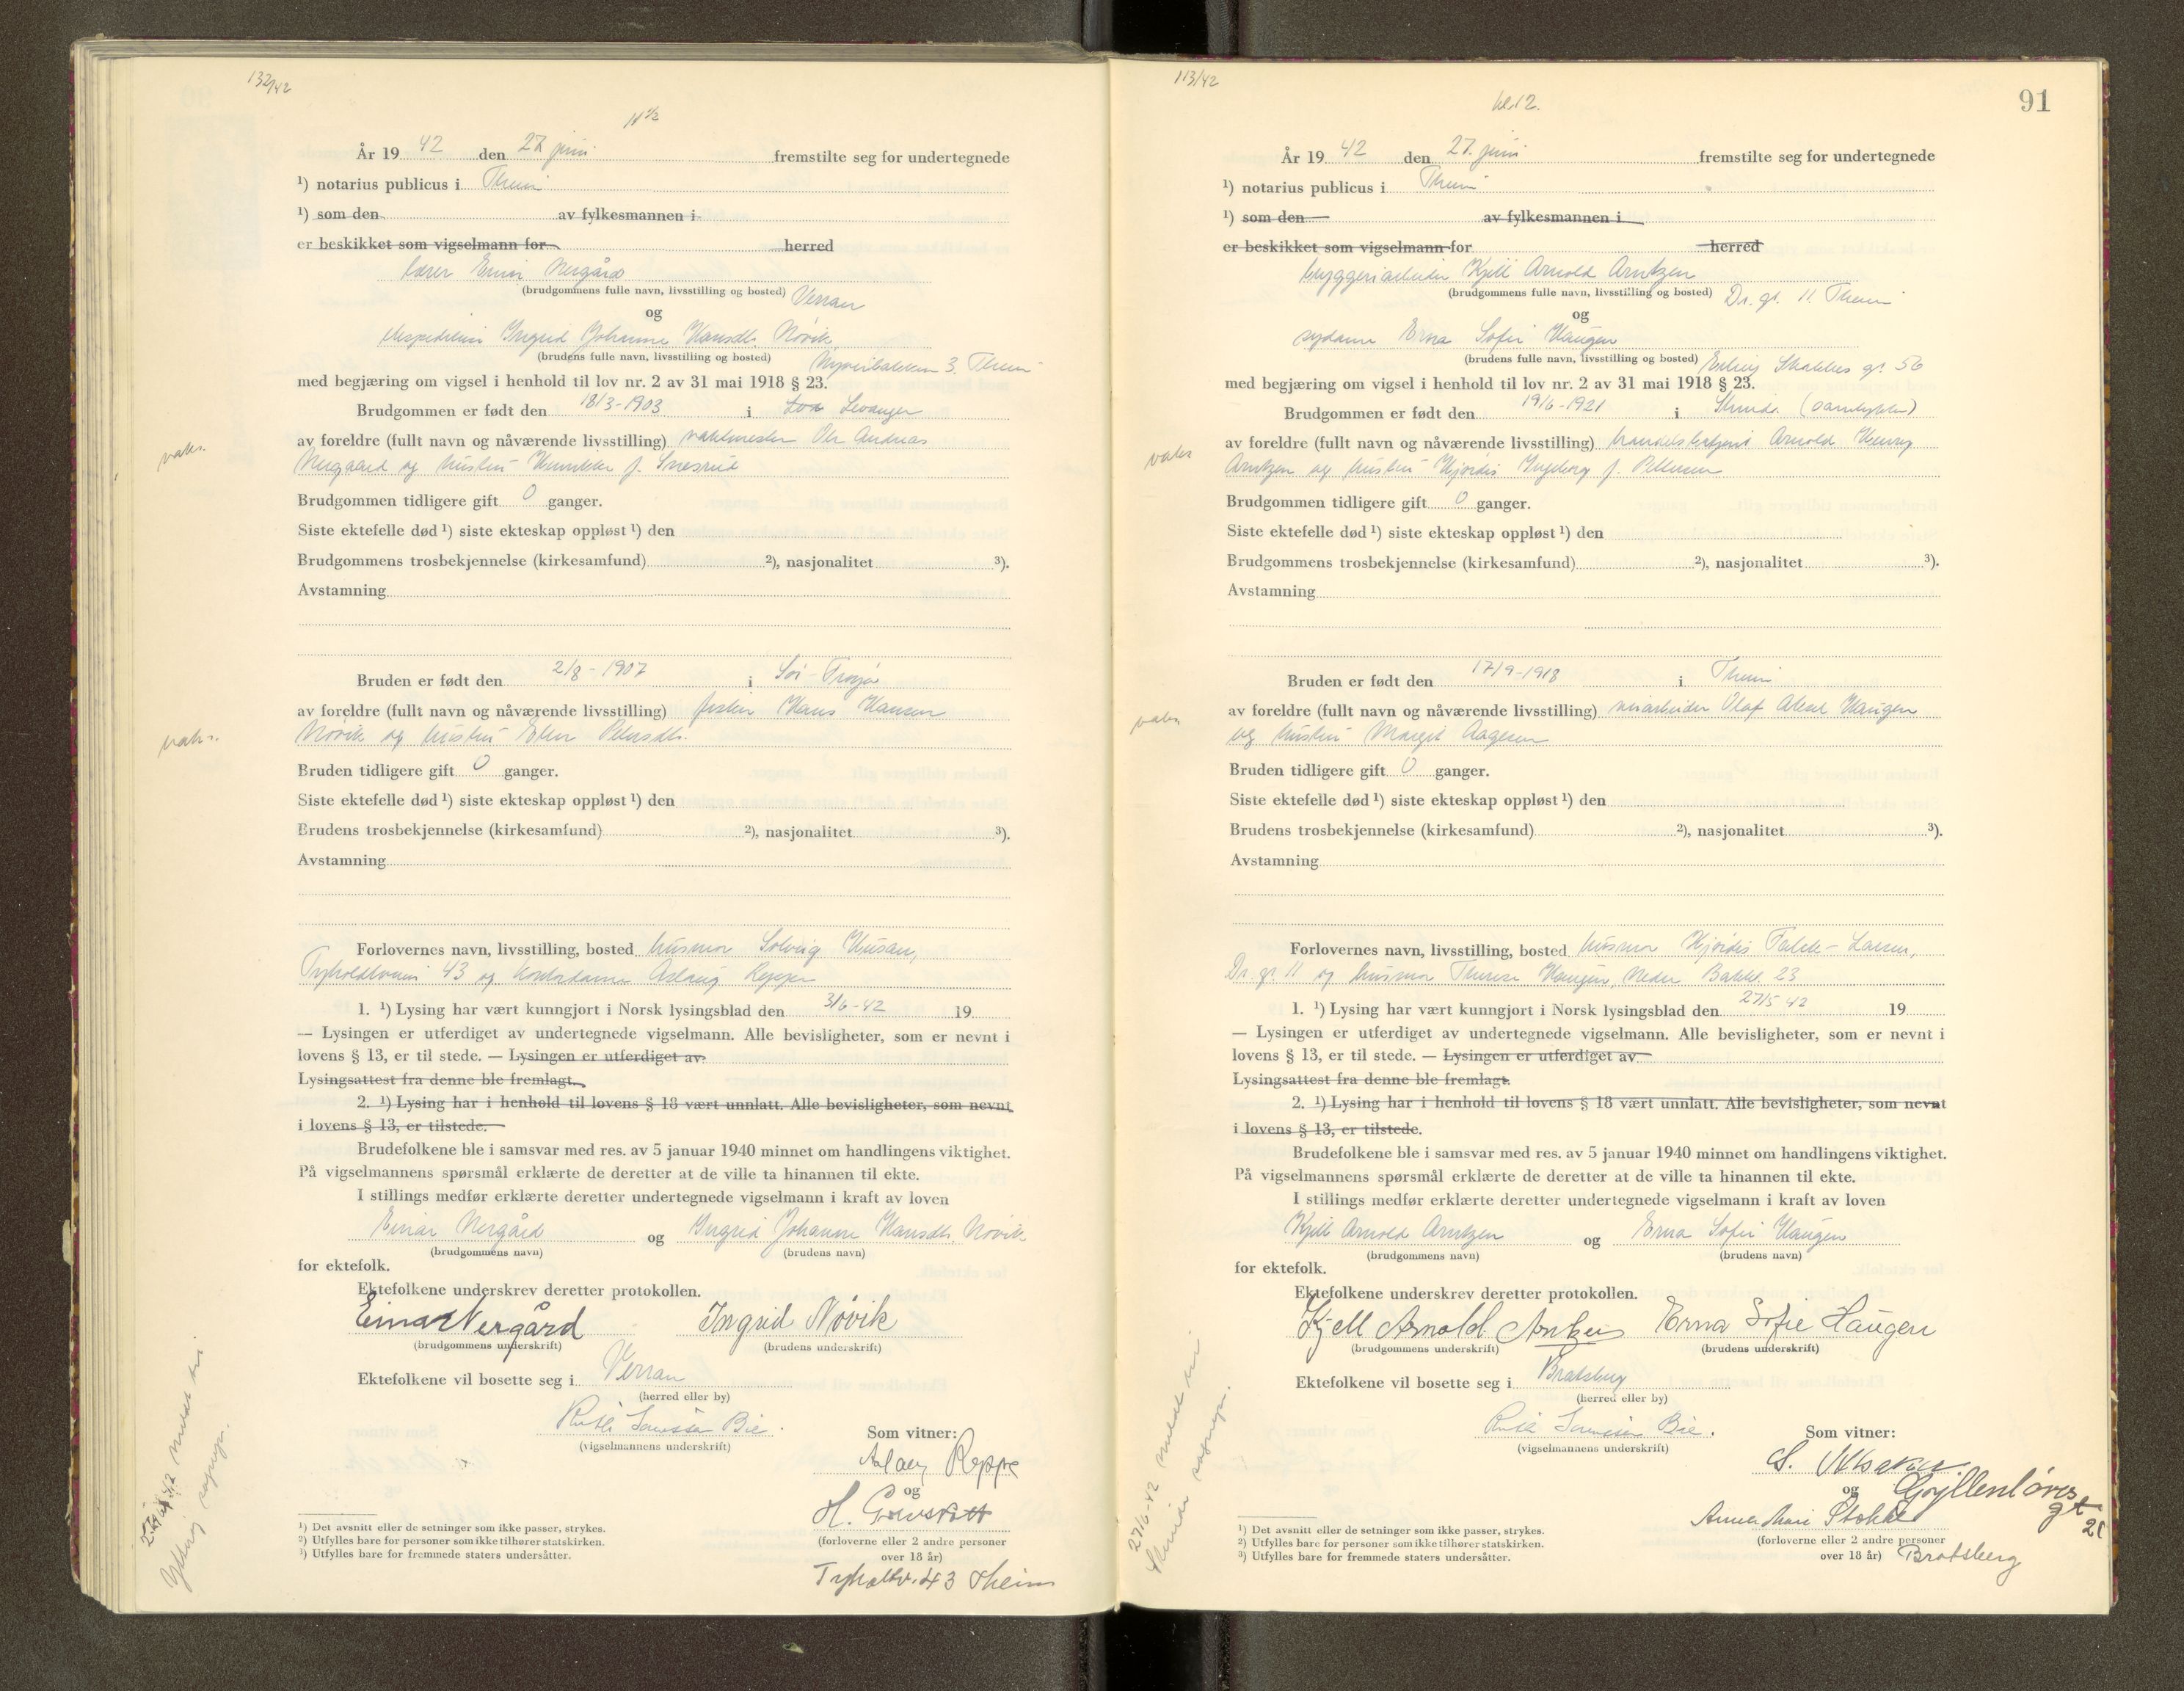 132/42
11 1/2
År 19 42 den 27 juni fremstilte seg for undertegnede
¹) notarius publicus i Thrm
¹) som den av fylkesmannen i
er beskikket som vigselmann for herred
lærer Einar Nergård
(brudgommens fulle navn, livsstilling og bosted) Verran
og
Ingrid Johanne Hansdt. Növik,
(brudens fulle navn, livsstilling og bosted) 3. Thrm
med begjæring om vigsel i henhold til lov nr. 2 av 31 mai 1918 § 23.
Brudgommen er født den 18/3-1903 i Levanger
av foreldre (fullt navn og nåværende livsstilling) vaktmester Ole Andreas
Nergaard og hustru f.
vaks.
Brudgommen tidligere gift 0 ganger.
Siste ektefelle død ¹) siste ekteskap oppløst ¹) den
Brudgommens trosbekjennelse (kirkesamfund) ²), nasjonalitet ³).
Avstamning
Bruden er født den 2/8-1907 i Sör-Fröya
av foreldre (fullt navn og nåværende livsstilling) fisker Hans Hansen
Növik og hustru Elen Petersdt.
vaks.
Bruden tidligere gift 0 ganger.
Siste ektefelle død ¹) siste ekteskap oppløst ¹) den
Brudens trosbekjennelse (kirkesamfund) ²), nasjonalitet ³).
Avstamning
Forlovernes navn, livsstilling, bosted husmor Solveig
43 og kontordame Aslaug Reppe
1. ¹) Lysing har vært kunngjort i Norsk lysingsblad den 3/6-42 19
— Lysingen er utferdiget av undertegnede vigselmann. Alle bevisligheter, som er nevnt i
lovens § 13, er til stede. — Lysingen er utferdiget av
Lysingsattest fra denne ble fremlagt.
2. ¹) Lysing har i henhold til lovens § 18 vært unnlatt. Alle bevisligheter, som nevnt
i lovens § 13, er tilstede.
Brudefolkene ble i samsvar med res. av 5 januar 1940 minnet om handlingens viktighet.
På vigselmannens spørsmål erklærte de deretter at de ville ta hinannen til ekte.
I stillings medfør erklærte deretter undertegnede vigselmann i kraft av loven
Einar Nergård og Ingrid Johanne Hansdt. Növik
(brudgommens navn) (brudens navn)
for ektefolk.
Ektefolkene underskrev deretter protokollen.
Einar Nergård Ingrid Növik
(brudgommens underskrift) (brudens underskrift)
Ektefolkene vil bosette seg i Verran
(herred eller by)
Bie.
(vigselmannens underskrift)
Som vitner:
Aslaug Reppe
og
H.
(forloverne eller 2 andre personer
over 18 år)
43 Thrm
¹) Det avsnitt eller de setninger som ikke passer, strykes.
²) Utfylles bare for personer som ikke tilhører statskirken.
³) Utfylles bare for fremmede staters undersåtter.
meldt til
Ytterøy sognepr.
113/42
kl. 12.
91
År 19 42 den 27. juni fremstilte seg for undertegnede
¹) notarius publicus i Thrm
¹) som den av fylkesmannen i
er beskikket som vigselmann for herred
bryggeriarbeider Kjell Arnold Arntzen
(brudgommens fulle navn, livsstilling og bosted) Dr. gt. 11. Thrm
og
sydame Erna Sofie Haugen
(brudens fulle navn, livsstilling og bosted) Erling Skakkes gt. 56
med begjæring om vigsel i henhold til lov nr. 2 av 31 mai 1918 § 23.
Brudgommen er født den 19/6-1921 i (samtykke)
av foreldre (fullt navn og nåværende livsstilling) Arnold Henry
Arntzen og hustru Hjördis Ingeborg f. Pettersen
vaks
Brudgommen tidligere gift 0 ganger.
Siste ektefelle død ¹) siste ekteskap oppløst ¹) den
Brudgommens trosbekjennelse (kirkesamfund) ²), nasjonalitet ³).
Avstamning
Bruden er født den 17/9-1918 i Thrm
av foreldre (fullt navn og nåværende livsstilling) Olaf Aksel Haugen
og hustru Margit Aagesen
vaks
Bruden tidligere gift 0 ganger.
Siste ektefelle død ¹) siste ekteskap oppløst ¹) den
Brudens trosbekjennelse (kirkesamfund) ²), nasjonalitet ³).
Avstamning
Forlovernes navn, livsstilling, bosted husmor Hjördis Falck-Larsen,
Dr. gt 11 og husmor Therese Haugen, Nedre Bakkl. 23
1. ¹) Lysing har vært kunngjort i Norsk lysingsblad den 27/5 42 19
— Lysingen er utferdiget av undertegnede vigselmann. Alle bevisligheter, som er nevnt i
lovens § 13, er til stede. — Lysingen er utferdiget av
Lysingsattest fra denne ble fremlagt.
2. ¹) Lysing har i henhold til lovens § 18 vært unnlatt. Alle bevisligheter, som nevnt
i lovens § 13, er tilstede.
Brudefolkene ble i samsvar med res. av 5 januar 1940 minnet om handlingens viktighet.
På vigselmannens spørsmål erklærte de deretter at de ville ta hinannen til ekte.
I stillings medfør erklærte deretter undertegnede vigselmann i kraft av loven
Kjell Arnold Arntzen og Erna Sofie Haugen
(brudgommens navn) (brudens navn)
for ektefolk.
Ektefolkene underskrev deretter protokollen.
Kjell Arnold Arntzen Erna Sofie Haugen
(brudgommens underskrift) (brudens underskrift)
Ektefolkene vil bosette seg i Bratsberg
(herred eller by)
Bie.
(vigselmannens underskrift)
Som vitner:
S.
og Gyllenløves gt 21
Anna Marie
(forloverne eller 2 andre personer
over 18 år) Bratsberg
¹) Det avsnitt eller de setninger som ikke passer, strykes.
²) Utfylles bare for personer som ikke tilhører statskirken.
³) Utfylles bare for fremmede staters undersåtter.
27/6-42 meldt til
sognepr.